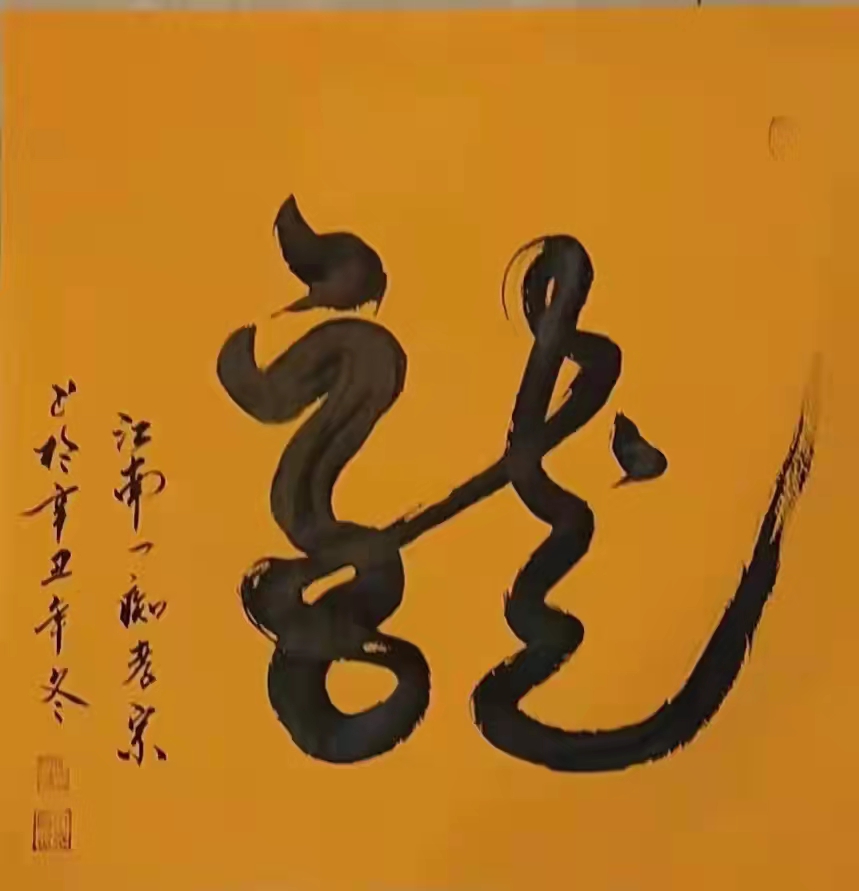 龍
江南一痴老宗
书於辛丑年冬